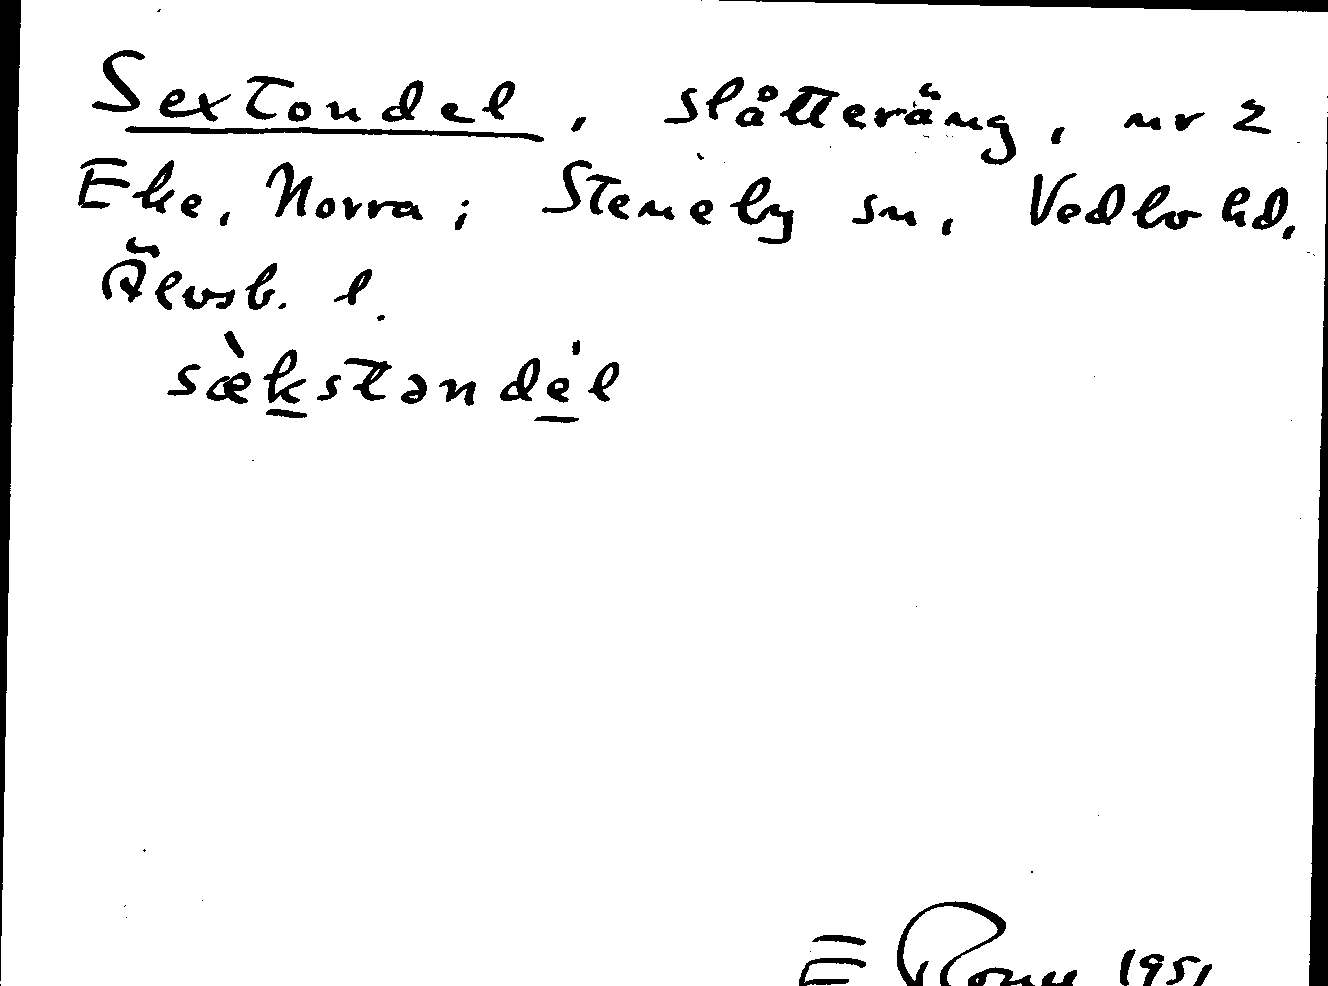 Sextondel, slåtteräng, nr 2
Eke, Norra; Steneby sn, Vedbo hd,
Älvsb. l.
sæ̀kstəndé̱l
E 1951